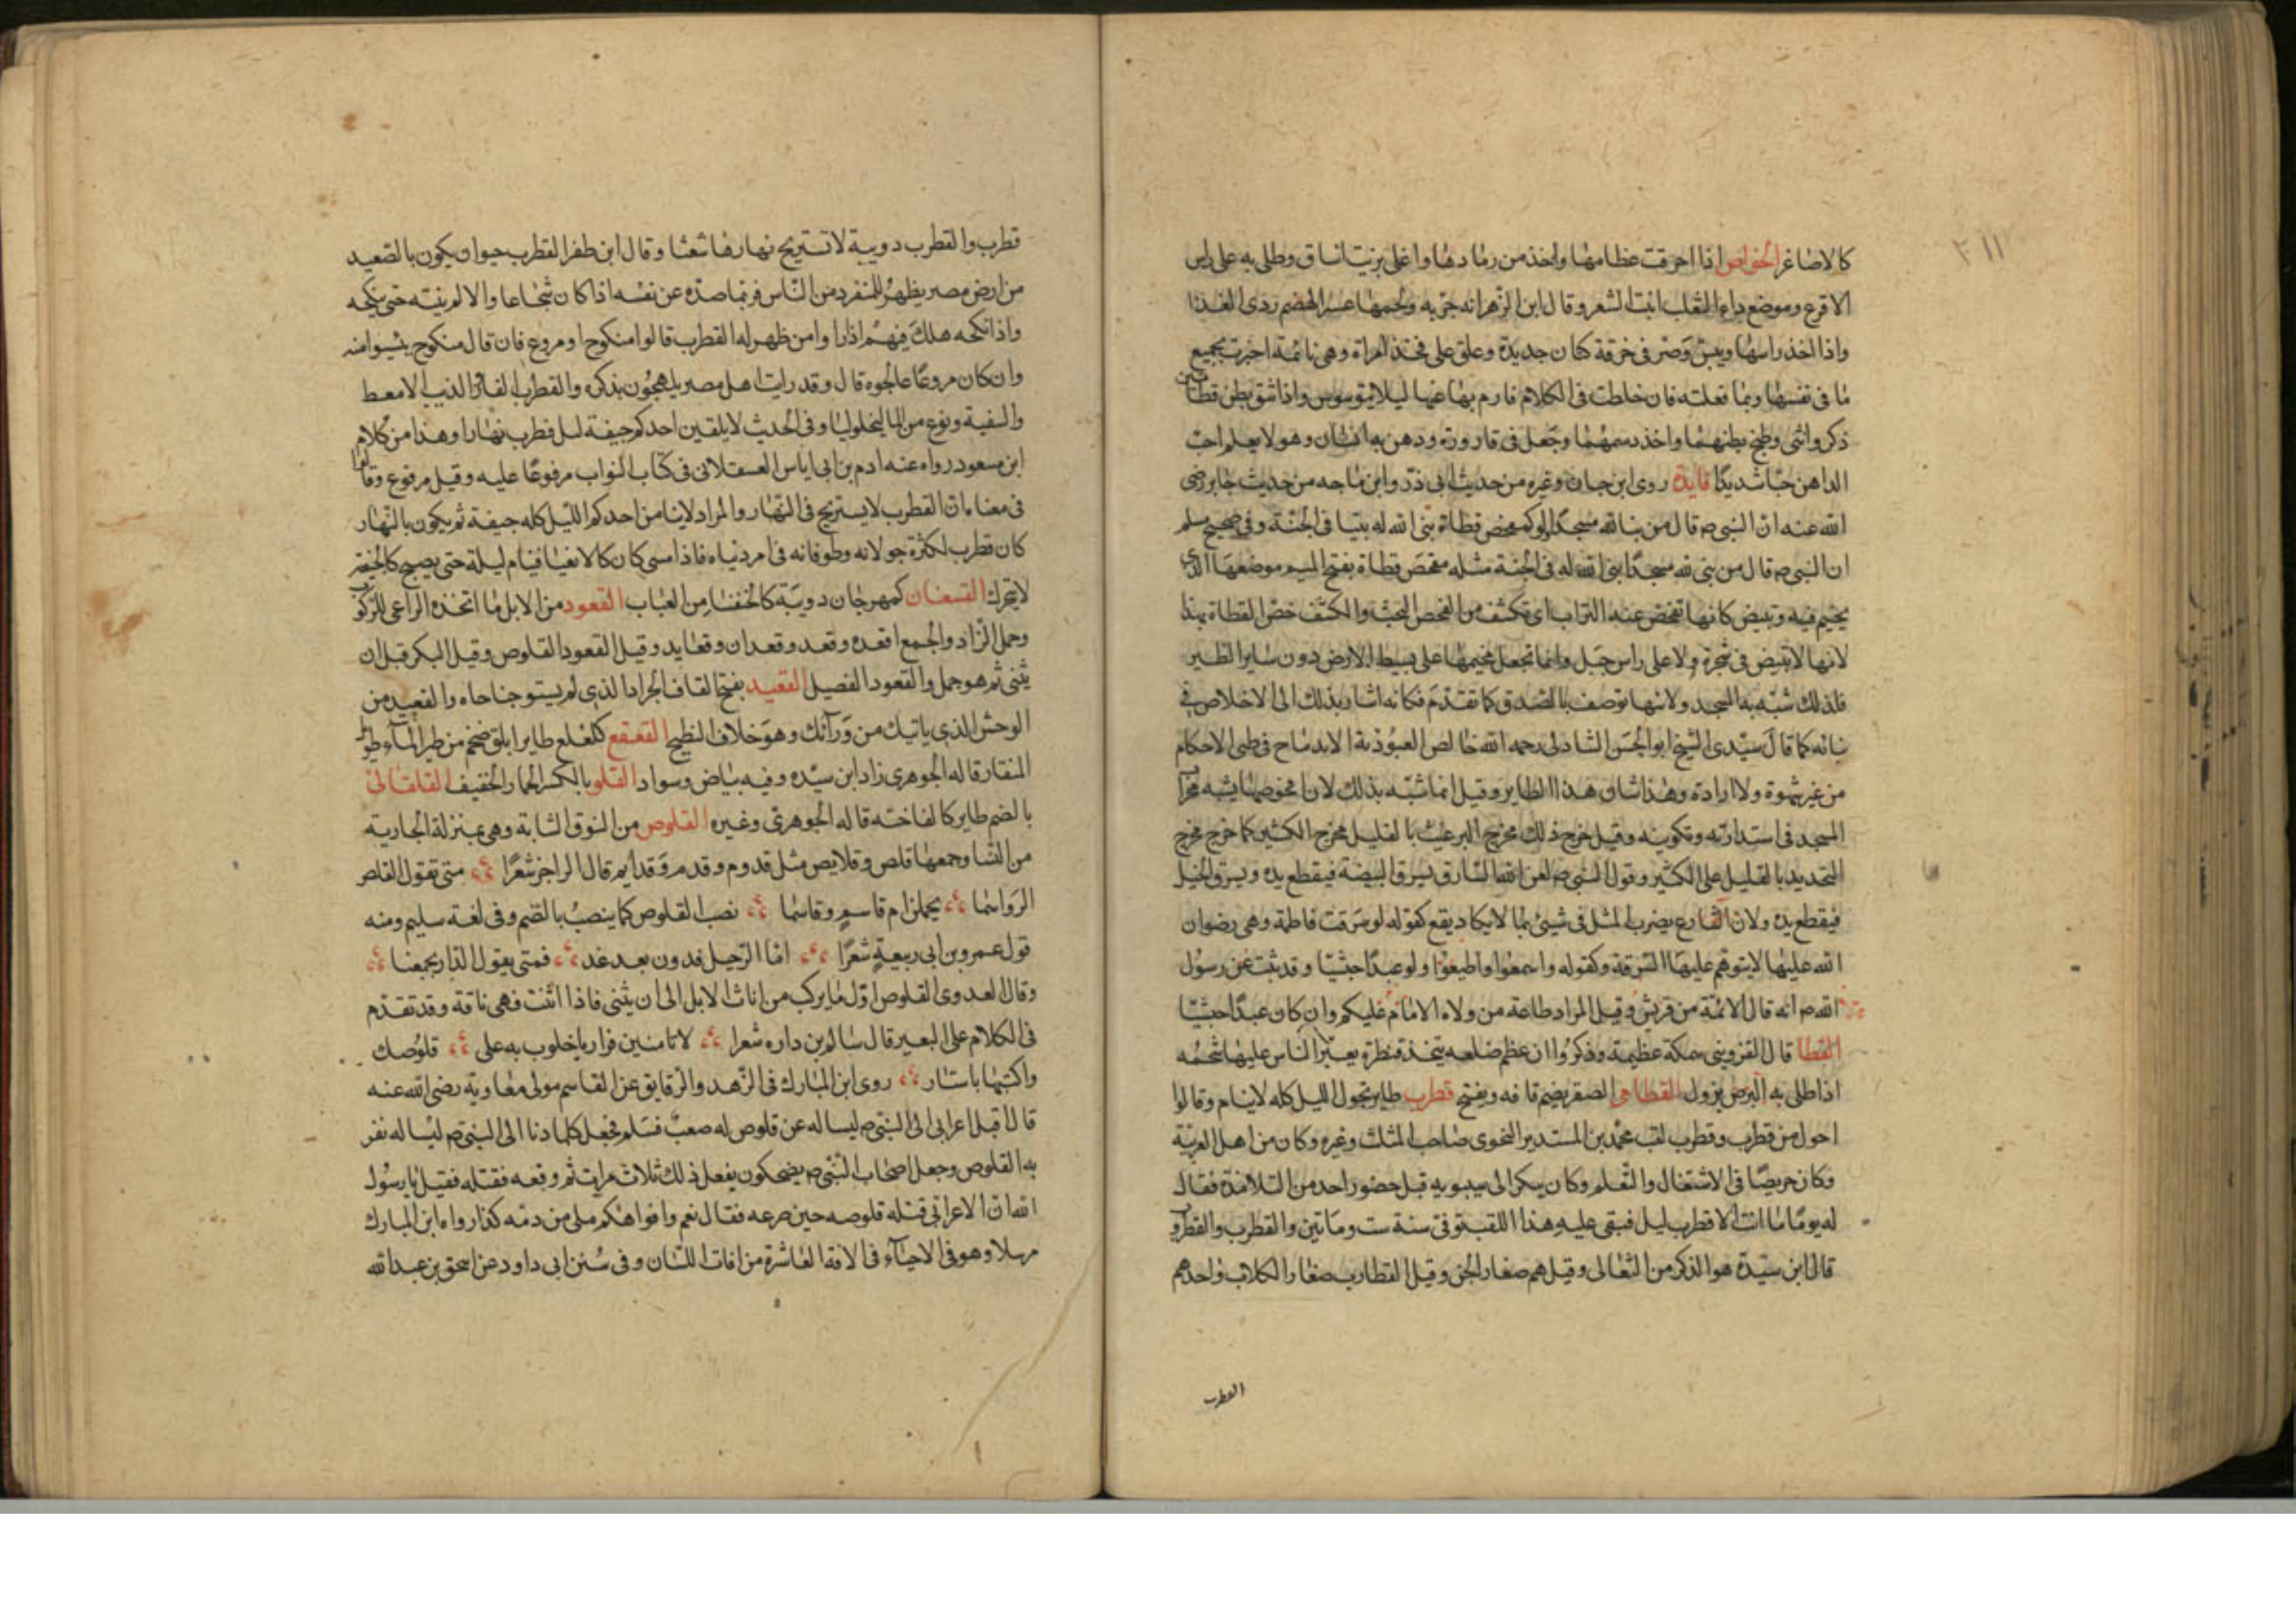 ٢١١
كالاصاغر الخواص اذا احرقت عظامها واخذ من رمادها واغلي بزيت انساق وطلي به على راس
الاقرع وموضع داء الثعلب انبت الشعر وقال ابن الزهر انه جربه ولحمها عسر الهضم ردي الغذا
واذا اخذ راسها ويبس وصر في خرقة كتان جديدة وعلق على فخذ امراة وهي نائمة اخبرت بجميع
ما في نفسها وبما فعلته فان خلطت في الكلام فارم بها عنها ليلا توسوس واذا شق بطن قطاتين
ذكر وانثى وطبخ بطنهما واخذ دسمهما وجعل في قارورة ودهن به انسان وهو لا يعلم احب
الداهن حبا شديدا فايدة روى ابن حبان وغيره من حديث ابي ذر وابن ماجه من حديث جابر رضى
الله عنه ان النبي ص قال من بنا لله مسجدا ولو كمفحص قطاة بنى الله له بيتا في الجنة وفي صحيح مسلم
ان النبي ص قال من بنى لله مسجدا بنى الله له في الجنة مثله مفحص قطاة بفتح الميم موضعها الذى
يخيم فيه وتبيض كانها تفحص عنه التراب اى تكشف من الفحص البحث والكشف خص القطاة بهذا
لانها لا تبيض في شجرة ولا على راس جبل وانما تجعل مخيمها على بسيط الارض دون ساير الطير
فلذلك شبه به المسجد ولانها توصف بالصدق كما تقدم فكانه اشار بذلك الى الاخلاص في
بنائه كما قال سيدى الشيخ ابو الحسن الشاذلى رحمه الله خالص العبوذية الاندماح في طى الاحكام
من غير شهوة ولا ارادة وهذا شان هذا الطاير وقيل انما شبه بذلك لان افحوصها يشبه محراب
المسجد في استدارته وتكوينه وقيل خرج ذلك مخرج الترغيب بالقليل مخرج الكثير كما خرج مخرج
التحديد بالقليل على الكثير وقول النبي ص لعن الله السارق يسرق البيضة فيقطع يده ويسرق الحبل
فيقطع يده ولان الشارع يضرب المثل في شيئ بما لا يكاد يقع كقوله لو سرقت فاطمة وهي رضوان
الله عليها لا يتوهم عليها السرقة وكقوله واسمعوا واطيعوا ولو عبدا حبشيا وقد ثبت عن رسول
الله ص انه قال الائمة من قريش وقيل المراد طاعة من ولاه الامام عليكم وان كان عبدا حبشيا
القطا قال القزوينى سمكة عظيمة وذكروا ان عظم ضلعه يتخذ قنطرة يعبر الناس عليها شحمه
اذا طلى به البرص يزول القطامى الصقر بضم قافه ويفتح قطرب طاير تجول الليل كله لا ينام وقالوا
احول من قطرب وقطرب لقب محمد بن المستدير النحوى صاحب المثلث وغيره وكان من اهل العربية
وكان حريصا في الاشتغال والتعلم وكان يبكر الى سيبويه قبل حضور احد من التلامذة فقال
له يوما ما انت الا قطرب ليل فبقى عليه هذا اللقب توفى سنة ست ومأتين والقطرب والقطروب
قال ابن سيدة هو الذكر من الثعالى وقيل هم صغار الجن وقيل القطارب صغار الكلاب واحدهم
القطرب
قطرب والقطرب دويبة لا تستريح نهارها شعئا وقال ابن ظفر القطرب حيوان يكون بالصعيد
من ارض مصر يظهر للمنفرد من الناس فربما صده عن نفسه اذا كان شجاعا والا لم ينته حتى ينكحه
واذا نكحه هلك فهم اذا راوا من ظهر له القطرب قالوا منكوح او مروع فان قال منكوح يئسوا منه
وان كان مروعا عالجوه قال وقد رايت اهل مصر يلهجون بذكره والقطرب الفار والذيب الامعط
والسفيه ونوع من الماليخوليا وفي الحديث لا يلقين احدكم جيفة ليل قطرب نهارا وهذا من كلام
ابن مسعود رواه عنه ادم بن ابي اياس العسقلانى في كتاب الثواب مرفوعا عليه وقيل مرفوع وقالوا
في معناه ان القطرب لا يستريح في النهار والمراد لا ينامن احدكم الليل كله جيفة ثم يكون بالنهار
كان قطرب لكثرة جولانه وطوفانه في امر دنياه فاذا امسى كان كالا نعيا فينام ليلة حتى يصبح كالجيفة
لا يتحرك القسغنان كمهرجان دويبة كالخنفسا من العباب القعود من الابل ما اتخذه الراعى للركوب
وحمل الزاد والجمع اقعده وقعد وقعدان وقعايد وقيل القعود القلوص وقيل البكر قبل ان
يثنى ثم هو جمل والقعود الفصيل القعيد بفتح القاف الجراد الذى لم يستو جناحاه والقعيد من
الوحش الذى ياتيك من ورآئك وهو خلاف النطيح القعقع كلعلع طاير ابلق ضخم من طير المآء طويل
المنقار قاله الجوهرى زاد ابن سيده وفيه بياض وسواد القلو بالكسر الحمار الخفيف القلقالى
بالضم طاير كالفاخته قاله الجوهرى وغيره القلوص من النوق الشابة وهي بمنزلة الجارية
من النسا وجمعها قلص وقلايص مثل قدوم وقدم وقدايم قال الراجز شعرا متى تقول القلص
الرواسما يحملن ام قاسم وقاسما نصب القلوص كما ينصب بالضم وفي لغة سليم ومنه
قول عمرو بن ابى ربيعة شعرا اما الرحيل فدون بعد غد فمتى يقول الدار يجمعنا
وقال العدوى القلوص اول ما يركب من اناث الابل الى ان يثنى فاذا اثنت فهى ناقة وقد تقدم
في الكلام على البعير قال سالم بن داره شعرا لا تامنين فراريا خلوت به على قلوصك
واكتبها باستار روى ابن المبارك في الزهد والرقايق عن القاسم مولى معاوية رضى الله عنه
قال اقبل اعرابى الى النبي ص ليساله عن قلوص له صعب فسلم فجعل كلما دنا الى النبي ص ليساله نفر
به القلوص وجعل اصحاب النبي ص يضحكون يفعل ذلك ثلاث مرات ثم وقعه فقتله فقيل يا رسول
الله ان الاعرابى قتله قلوصه حين صرعه فقال نعم وافواهكم ملى من دمه كذا رواه ابن المبارك
مرسلا وهو في الاحيآء في الافة العاشرة من افات اللسان وفي سنن ابى داود عن اسحق بن عبد الله